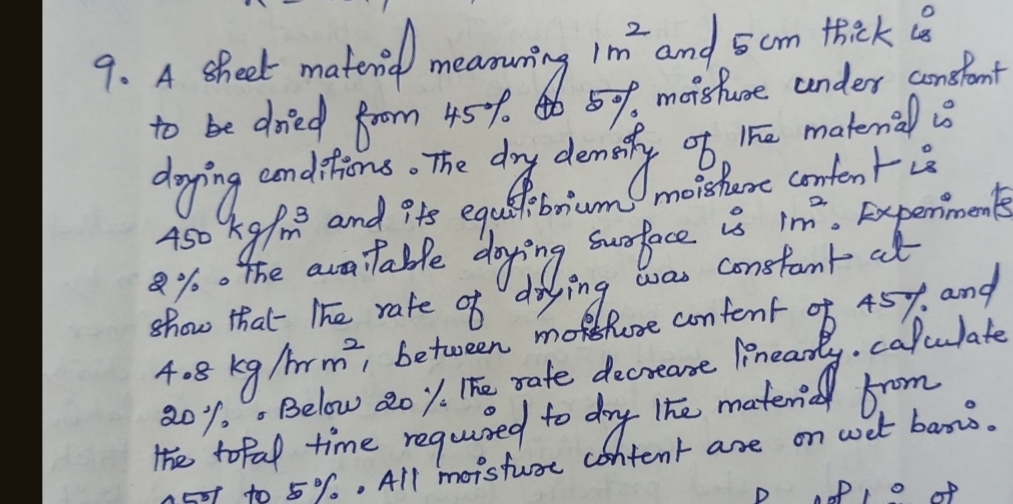 9. A sheet material measuring 1m² and 5 cm thick is
to be dried from 45% to 5% moisture under constant
drying conditions. The dry density of the material is
450 kg/m³ and its equilibrium moisture content is
2%. The available drying surface is 1m². Experiments
show that the rate of drying was constant at
4.8 kg/hr m², between moisture content of 45% and
20%. Below 20% the rate decrease linearly. calculate
the total time required to dry the material from
45% to 5%. All moisture content are on wet basis.